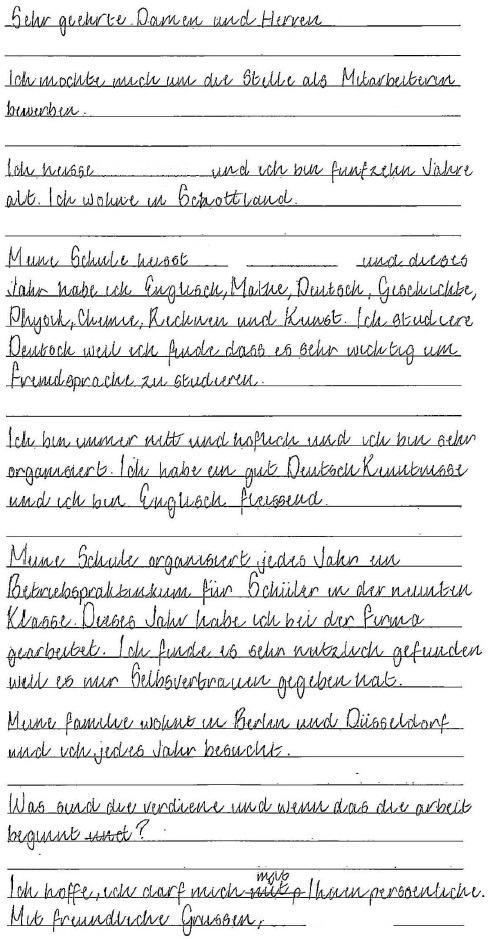 Sehr geehrte Damen und Herren
Ich mochte mich um die Stelle als Mitarbeiterin
bewerben.
Ich heisse und ich bin funfzehn Jahre
alt. Ich wohne in Schottland.
Meine Schule heisst und dieses
Jahr habe ich Englisch, Mathe, Deutsch, Geschichte,
Physik, Chemie, Rechnen und Kunst. Ich studiere
Deutsch weil ich finde dass es sehr wichtig um
fremdsprache zu studieren.
Ich bin immer nett und hoflich und ich bin sehr
organisiert. Ich habe ein gut Deutsch Kenntnisse
und ich bin Englisch fleissend.
Meine Schule organisiert jedes Jahr ein
Betriebspraktinkum für Schüler in der neunten
Klasse. Dieses Jahr habe ich bei der firma
gearbeitet. Ich finde es sehr nutzlich gefunden
weil es mir Selbsvertrauen gegeben hat.
Meine familie wohnt in Berlin und Düsseldorf
und ich jedes Jahr besucht.
Was sind die verdiene und wenn das die arbeit
beginnt und?
Ich hoffe, ich darf mich Ihnen persoenliche.
Mit freundliche Grussen,